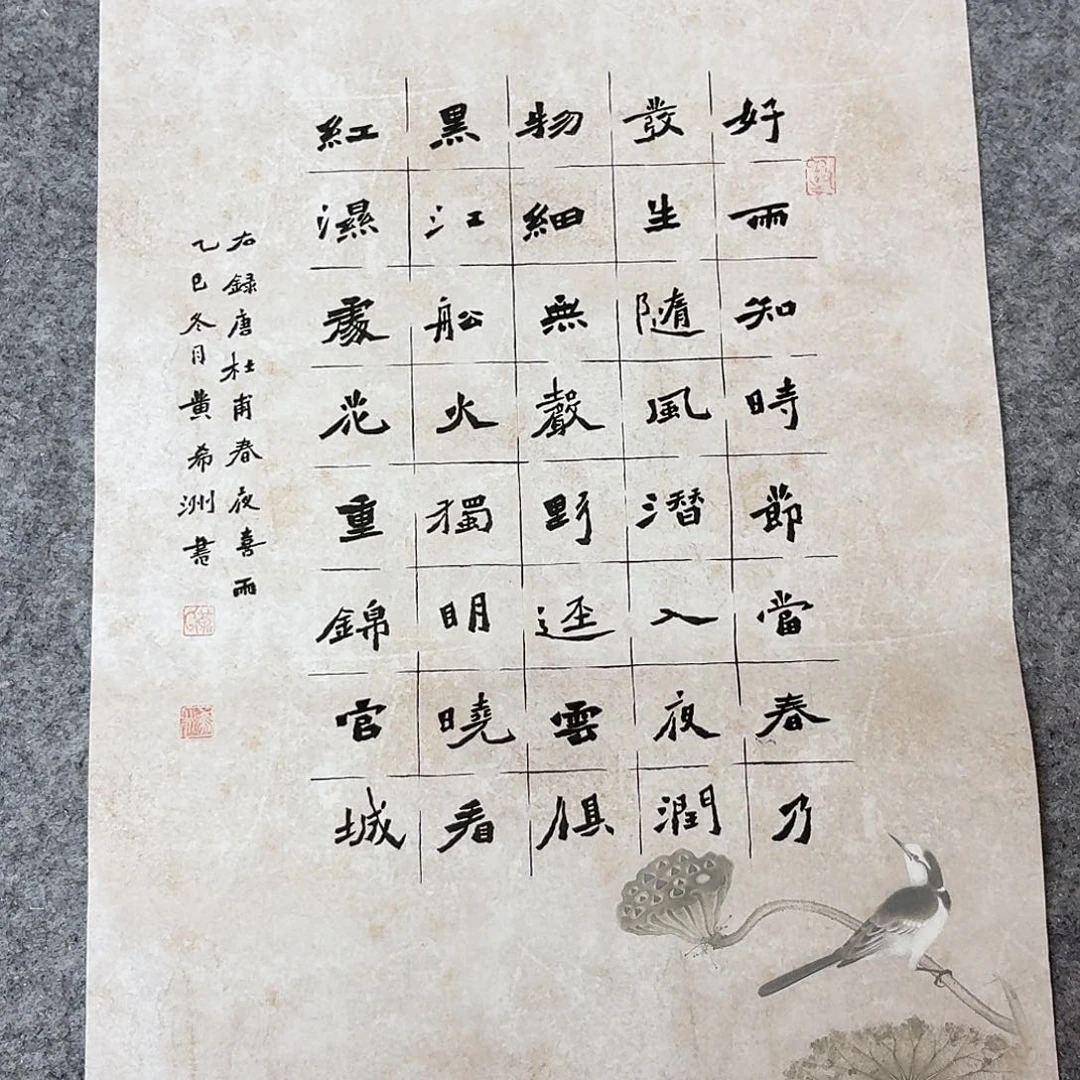 好雨知時節當春乃
發生隨風潛入夜潤
物細無聲野逕雲俱
黑江船火獨明曉看
紅濕處花重錦官城
右録唐杜甫春夜喜雨
乙巳冬月黄希洲書